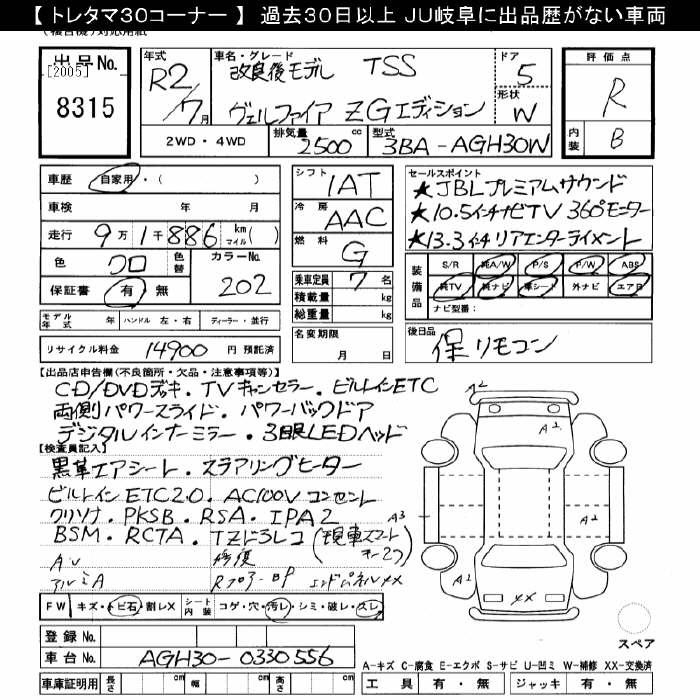 【 トレタマ30コーナー 】 過去30日以上 JU岐阜に出品歴がない車両
出品No.
[2005]
8315
年式
R2/7月
車名・グレード
改良後モデル TSS
ヴェルファイア ZGエディション
ドア
5
形状
W
評価点
R
内装
B
2WD・4WD
排気量
2500 cc
型式
3BA-AGH30W
車歴 自家用・( )
車検 年 月
走行 9万1千886 km(マイル)
色 クロ 色替
カラーNo. 202
保証書 有 無
シフト
IAT
冷房
AAC
燃料
G
乗車定員 7 名
積載量 kg
総重量 kg
セールスポイント
★JBLプレミアムサウンド
★10.5インチナビTV 360°モニター
★13.3インチリアエンターテイメント
装備品
S/R 純A/W P/S P/W ABS
純TV 純ナビ 革シート 外ナビ エアB
ナビ型番:
モデル年式 年 ハンドル 左・右 ディーラー・並行
リサイクル料金 14900 円 預託済
名変期限
月 日
後日品
保 リモコン
【出品店申告欄(不良箇所・欠品・注意事項等)】
CD/DVDデッキ・TVキャンセラー・ビルトインETC
両側パワースライド・パワーバックドア
デジタルインナーミラー・3眼LEDヘッド
【検査員記入】
黒革エアシート・ステアリングヒーター
ビルトインETC2.0・AC100Vコンセント
クリソナ・PKSB・RSA・IPA2
BSM・RCTA・TZドラレコ (現車スマートキー2つ)
AU 修復
アルミA Rフロアー BP エンドパネルXX
A2
A2
A3
A2
A2
A2
XX
FW キズ・トビ石・割レX
シート内装 コゲ・穴・汚レ・シミ・破レ・スレ
スペア
登録No.
車台No. AGH30-0330556
車庫証明用 長さ cm 幅 cm 高さ cm
A-キズ C-腐食 E-エクボ S-サビ U-凹ミ W-補修 XX-交換済
工具 有・無 ジャッキ 有・無